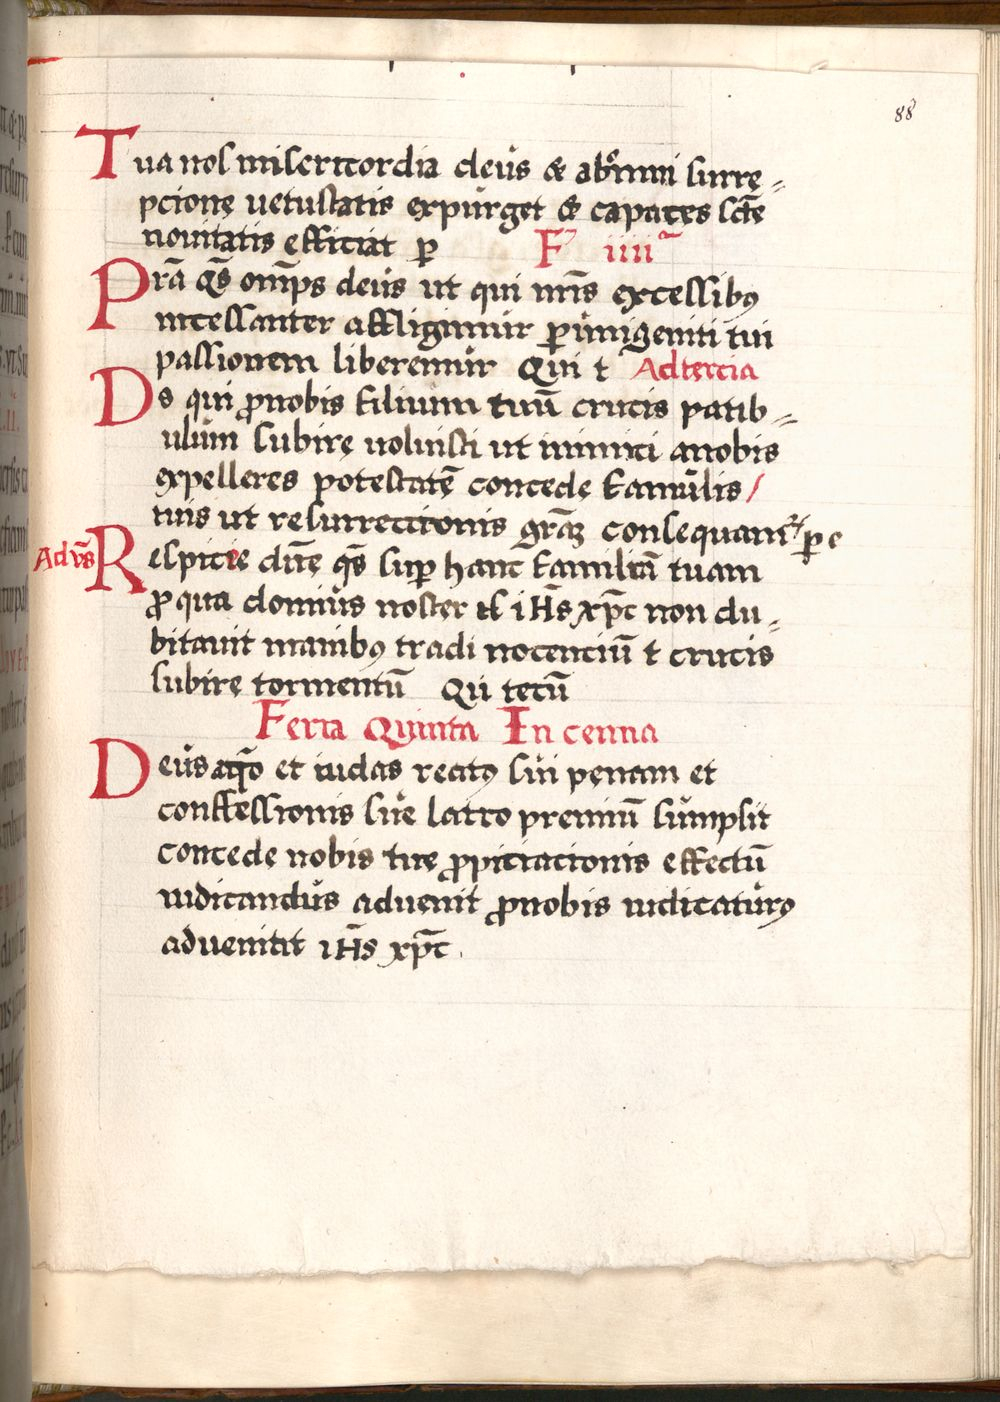 88
Tua nos misericordia deus & ab omni surrę-
pcionę uetustatis expurget & capaces sc̄tę
nouitatis efficiat ꝑ F iiiiᵃ
Pra᷒ q̄s om̄ps deus ut qui nr̄is excessibꝰ
incessanter affligimur ꝑ unigeniti tui
passionem liberemur Qui t Ad tercia
Ds qui ꝓ nobis filium tuū crucis patib-
ulum subirę uoluisti ut inimici a nobis
expelleres potestatē concedę famulis
tuis ut resurrectionis grām consequant᷑ ꝑ e
Ad vs̄ Respicie dn̄e q̄s suꝑ hanc familiā tuam
ꝓ qua dominus noster iħs xp̄c non du-
bitauit manibꝰ tradi nocenciū & crucis
subirę tormentū Qui tecū
Feria Quinta In cenna
Deus a quo et iudas reatꝰ sui penam et
confessionis suę latro premiū sumpsit
concedę nobis tuę ꝓpiciacionis effectū
iudicandus aduenit ꝓ nobis iudicaturꝰ
aduenitit iħs xp̄c.